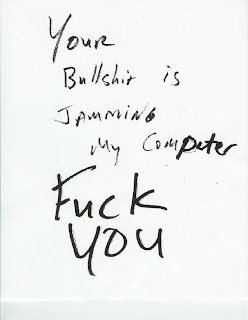 Your
Bullshit is
Jamming
My Computer
Fuck
You